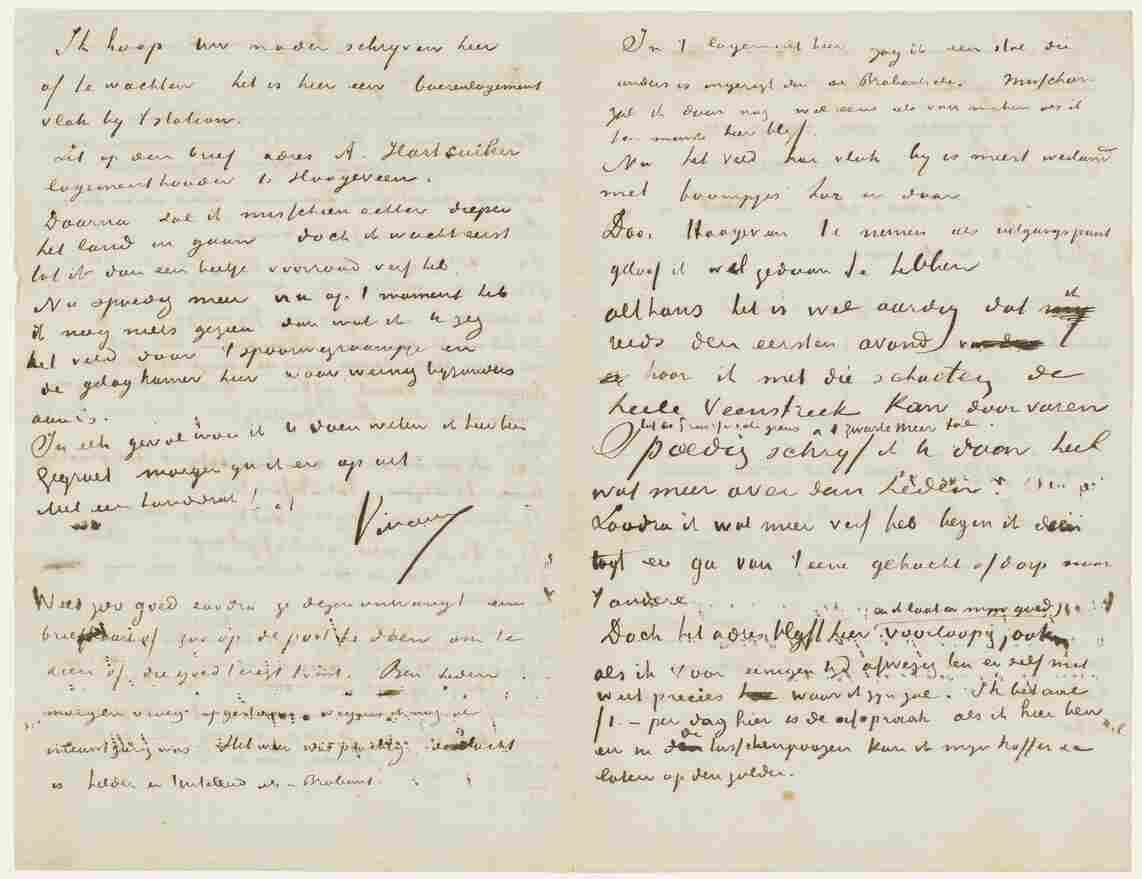 Ik hoop uw nader schrijven hier
af te wachten het is hier een boerenlogement
vlak by 't station.
Zet op den brief adres A. Hartsuiker
logementhouder te Hoogeveen.
Daarna zal ik misschien achter dieper
het land in gaan doch ik wacht eerst
tot ik dan een beetje voorraad verf heb.
Nu spoedig meer nu op 't moment heb
ik nog niets gezien dan wat ik u zeg
het veld door 't spoorwegraampje en
de gelagkamer hier waar weinig byzonders
aan is.
In elk geval wou ik u doen weten ik hier ben
Gegroet morgen ga ik er op uit.
Met een handdruk!
Vincent
Wees zoo goed zoodra ge dezen ontvangt een
briefkaart op de post te doen om te
zien of die goed teregt komt. Ben heden
morgen vroeg opgestaan
nieuwsgierig was. Het weer was prachtig de lucht
is helder en tintelend als in Brabant.
In 't logement hier zag ik een stal die
anders is ingerigt dan de Brabantsche. Misschien
zal ik daar nog wel eens iets van maken als ik
ten minste hier blyf.
Nu het veld hier vlak by is meest weiland
met boompjes hier en daar
Door Hoogeveen te nemen als uitgangspunt
geloof ik wel gedaan te hebben
althans het is wel aardig dat ik
reeds den eersten avond
hoor ik met die schuiten de
heele Veenstreek kan doorvaren
tot de Pruissische grens a 't zwarte meer toe.
Spoedig schryf ik u daar heel
wat meer over dan heden.
Zoodra ik wat meer verf heb begin ik dien
togt en ga van 't eene gehucht of dorp naar
't andere
en ik laat er myn goed
Doch het adres blyft hier voorloopig ook
als ik voor eenigen tyd afwezig ben en zelf niet
weet precies waar ik zyn zal. Ik betaal
f1.- per dag hier is de afspraak als ik hier ben
en in de tusschenpoozen kan ik myn koffer &c
laten op den zolder.